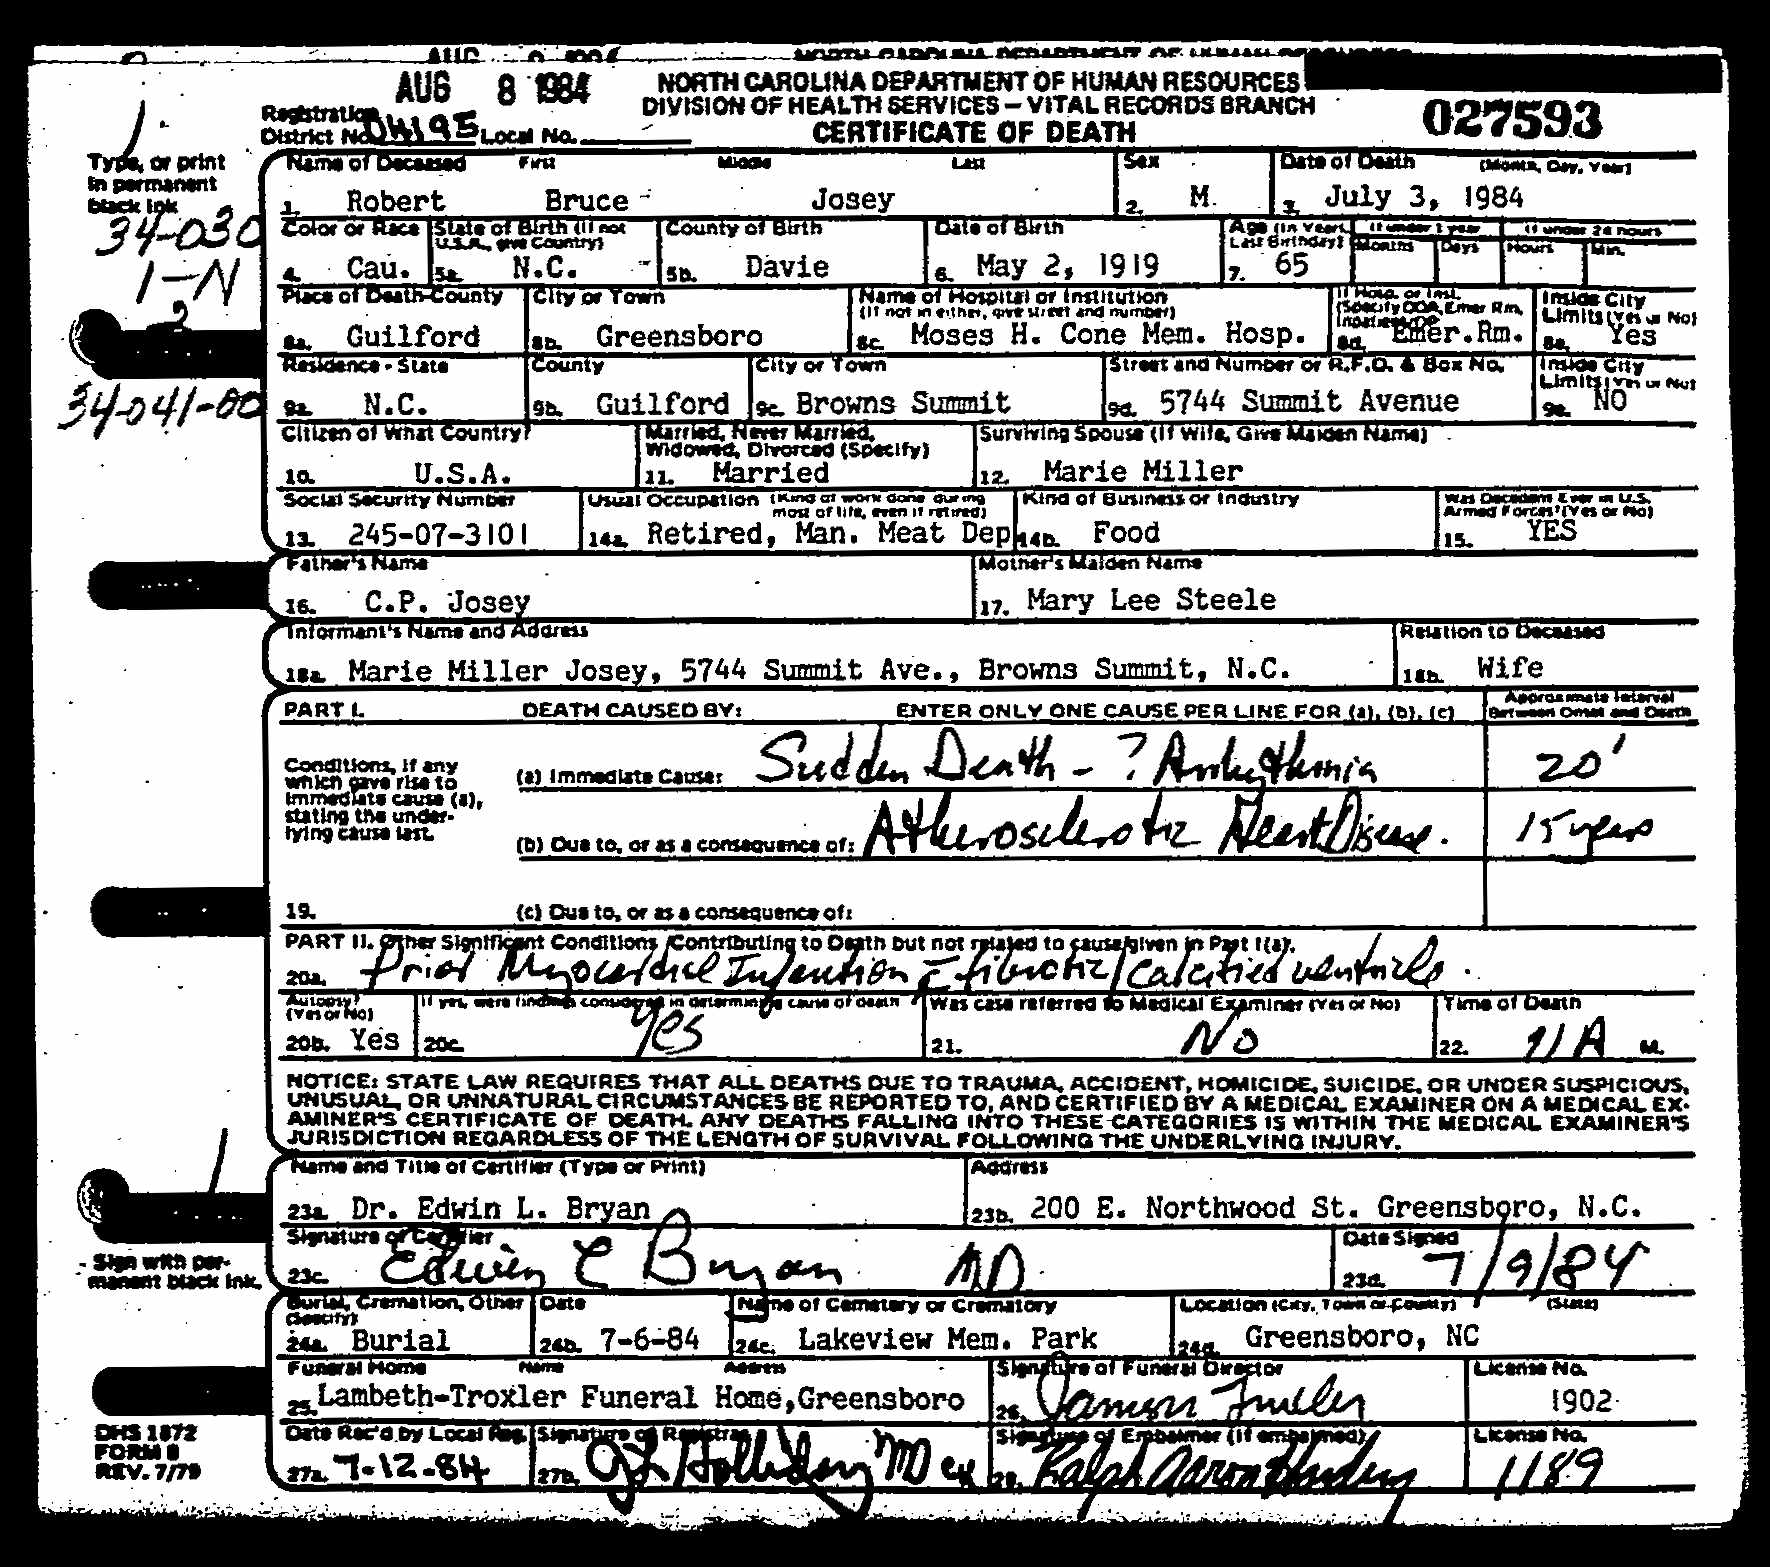 AUG 8 1984
NORTH CAROLINA DEPARTMENT OF HUMAN RESOURCES
DIVISION OF HEALTH SERVICES – VITAL RECORDS BRANCH
CERTIFICATE OF DEATH
027593
Registration
District No. Local No.
Type, or print
in permanent
black ink
34-030
1-N
2
34-041-00
Name of Deceased First Middle Last Sex Date of Death (Month, Day, Year)
1. Robert Bruce Josey 2. M. 3. July 3, 1984
Color or Race State of Birth (If not U.S.A., give Country) County of Birth Date of Birth Age (In Years Last Birthday) If under 1 year Months Days If under 24 hours Hours Min.
4. Cau. 5a. N.C. 5b. Davie 6. May 2, 1919 7. 65
Place of Death-County City or Town Name of Hospital or Institution (If not in either, give street and number) If Hosp. or Inst. (Specify DOA, Emer Rm, Inpatient, OP Inside City Limits (Yes or No)
8a. Guilford 8b. Greensboro 8c. Moses H. Cone Mem. Hosp. 8d. Emer.Rm. 8e. Yes
Residence - State County City or Town Street and Number or R.F.D. & Box No. Inside City Limits (Yes or No)
9a. N.C. 9b. Guilford 9c. Browns Summit 9d. 5744 Summit Avenue 9e. NO
Citizen of What Country? Married, Never Married, Widowed, Divorced (Specify) Surviving Spouse (If Wife, Give Maiden Name)
10. U.S.A. 11. Married 12. Marie Miller
Social Security Number Usual Occupation (Kind of work done during most of life, even if retired) Kind of Business or Industry Was Decedent Ever in U.S. Armed Forces? (Yes or No)
13. 245-07-3101 14a. Retired, Man. Meat Dep 14b. Food 15. YES
Father's Name Mother's Maiden Name
16. C.P. Josey 17. Mary Lee Steele
Informant's Name and Address Relation to Deceased
18a. Marie Miller Josey, 5744 Summit Ave., Browns Summit, N.C. 18b. Wife
PART I. DEATH CAUSED BY: ENTER ONLY ONE CAUSE PER LINE FOR (a), (b), (c) Approximate Interval Between Onset and Death
Conditions, if any
which gave rise to
immediate cause (a),
stating the under-
lying cause last.
(a) Immediate Cause: Sudden Death - ? Arrhythmia 20'
(b) Due to, or as a consequence of: Atherosclerotic Heart Disease. 15 years
19. (c) Due to, or as a consequence of:
PART II. Other Significant Conditions Contributing to Death but not related to cause given in Part I(a).
20a. Prior Myocardial Infarction c̄ fibrotic/calcified ventricle.
Autopsy? (Yes or No) If yes, were findings considered in determining cause of death Was case referred to Medical Examiner (Yes or No) Time of Death
20b. Yes 20c. Yes 21. No 22. A M.
NOTICE: STATE LAW REQUIRES THAT ALL DEATHS DUE TO TRAUMA, ACCIDENT, HOMICIDE, SUICIDE, OR UNDER SUSPICIOUS,
UNUSUAL, OR UNNATURAL CIRCUMSTANCES BE REPORTED TO, AND CERTIFIED BY A MEDICAL EXAMINER ON A MEDICAL EX-
AMINER'S CERTIFICATE OF DEATH. ANY DEATHS FALLING INTO THESE CATEGORIES IS WITHIN THE MEDICAL EXAMINER'S
JURISDICTION REGARDLESS OF THE LENGTH OF SURVIVAL FOLLOWING THE UNDERLYING INJURY.
Name and Title of Certifier (Type or Print) Address
23a. Dr. Edwin L. Bryan 23b. 200 E. Northwood St. Greensboro, N.C.
Signature of Certifier Date Signed
- Sign with per-
manent black ink.
23c. Edwin L Bryan MD 23d. 7/9/84
Burial, Cremation, Other (Specify) Date Name of Cemetery or Crematory Location (City, Town or County) (State)
24a. Burial 24b. 7-6-84 24c. Lakeview Mem. Park 24d. Greensboro, NC
Funeral Home Name Address Signature of Funeral Director License No.
25. Lambeth-Troxler Funeral Home,Greensboro 26. 1902
Date Rec'd by Local Reg. Signature of Registrar Signature of Embalmer (if embalmed) License No.
27a. 7-12-84 27b. Holliday MD 28. Ralph Aaron 1189
DHS 1872
FORM 8
REV. 7/79